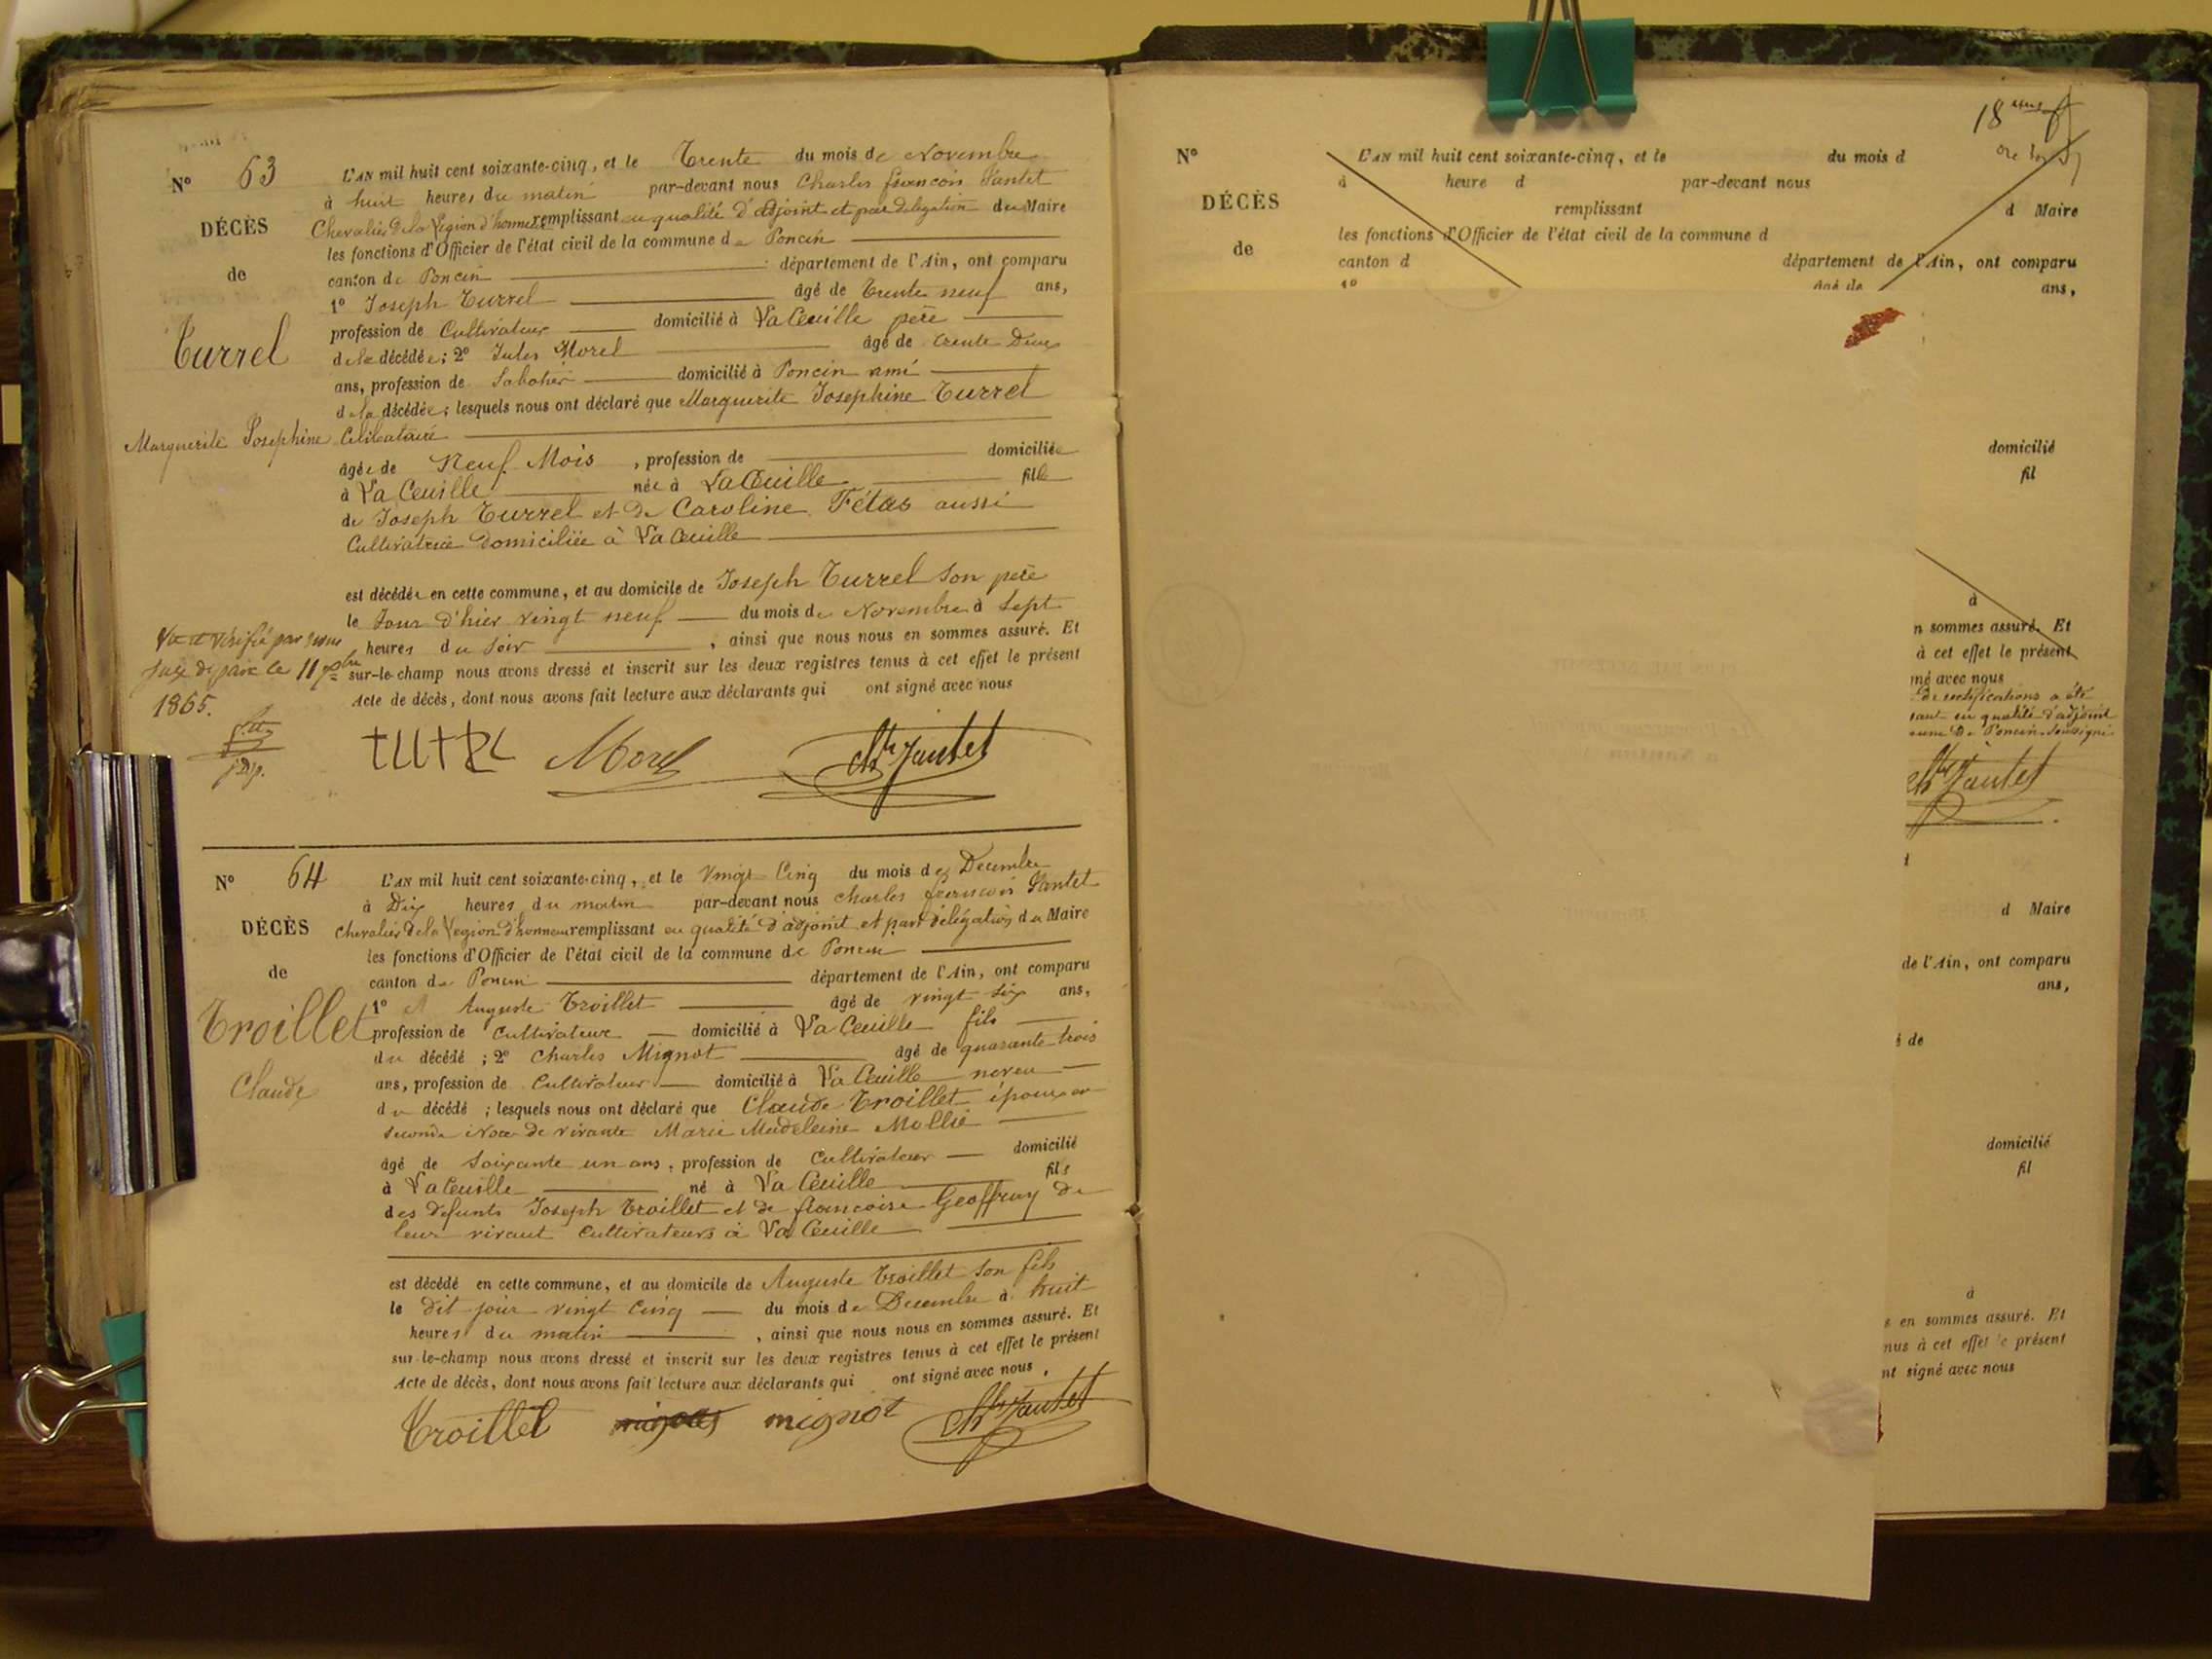 N° 63
L'AN mil huit cent soixante-cinq, et le Trente du mois de Novembre
à huit heures du matin par-devant nous Charles francois Jantet
DÉCÈS
Chevalier de la Légion d'honneur remplissant en qualité d'adjoint et par délégation du Maire
les fonctions d'Officier de l'état civil de la commune de Poncin
de
canton de Poncin département de l'Ain, ont comparu
1° Joseph Turrel âgé de Trente neuf ans,
Turrel
profession de Cultivateur domicilié à La Cueille père
de la décédée; 2° Jules Morel âgé de trente Deux
ans, profession de Sabotier domicilié à Poncin ami
de la décédée; lesquels nous ont déclaré que Marguerite Josephine Turrel
Marguerite Josephine
Célibataire
âgée de Neuf Mois, profession de domiciliée
à La Cueille née à La Cueille fille
de Joseph Turrel et de Caroline Fétas aussi
Cultivatrice domiciliée à La Cueille
est décédée en cette commune, et au domicile de Joseph Turrel son père
le Jour d'hier vingt neuf du mois de Novembre à Sept
heures du soir, ainsi que nous nous en sommes assuré. Et
sur-le-champ nous avons dressé et inscrit sur les deux registres tenus à cet effet le présent
Acte de décès, dont nous avons fait lecture aux déclarants qui ont signé avec nous
Vu et vérifié par nous
juge de paix le 11
1865.
Morel Ch Jantet
N° 64
L'AN mil huit cent soixante-cinq, et le Vingt Cinq du mois de Decembre
à Dix heures du matin par-devant nous Charles francois Jantet
DÉCÈS
Chevalier de la Légion d'honneur remplissant en qualité d'adjoint et par délégation du Maire
les fonctions d'Officier de l'état civil de la commune de Poncin
de
canton de Poncin département de l'Ain, ont comparu
1° Auguste Troillet âgé de vingt six ans,
Troillet
profession de Cultivateur domicilié à La Cueille fils
du décédé; 2° Charles Mignot âgé de quarante trois
Claude
ans, profession de Cultivateur domicilié à La Cueille neveu
du décédé; lesquels nous ont déclaré que Claude Troillet époux en
seconde Noce de vivante Marie Madeleine Mollie
âgé de Soixante un ans, profession de Cultivateur domicilié
à La Cueille né à La Cueille fils
des défunts Joseph Troillet et de francoise Geoffray de
leur vivant Cultivateurs à La Cueille
est décédé en cette commune, et au domicile de Auguste Troillet son fils
le dit jour vingt Cinq du mois de Decembre à huit
heures du matin, ainsi que nous nous en sommes assuré. Et
sur-le-champ nous avons dressé et inscrit sur les deux registres tenus à cet effet le présent
Acte de décès, dont nous avons fait lecture aux déclarants qui ont signé avec nous.
Troillet mignot Ch Jantet
N°
L'AN mil huit cent soixante-cinq, et le du mois d
à heure d par-devant nous
DÉCÈS
remplissant d Maire
les fonctions d'Officier de l'état civil de la commune d
de
canton d département de l'Ain, ont comparu
1° âgé de ans,
domicilié
fil
à
n sommes assuré. Et
à cet effet le présent
né avec nous
de rectifications a été
sant en qualité d'adjoint
mune De Poncin Soussigné
Ch Jantet
d Maire
de l'Ain, ont comparu
ans,
é de
domicilié
fil
à
s en sommes assuré. Et
nus à cet effet le présent
nt signé avec nous